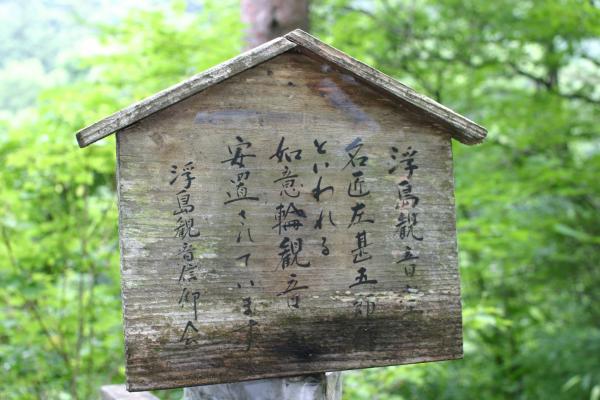 浮島観音は
名匠左甚五郎作
といわれる
如意輪観音
安置されています
浮島観音信仰会